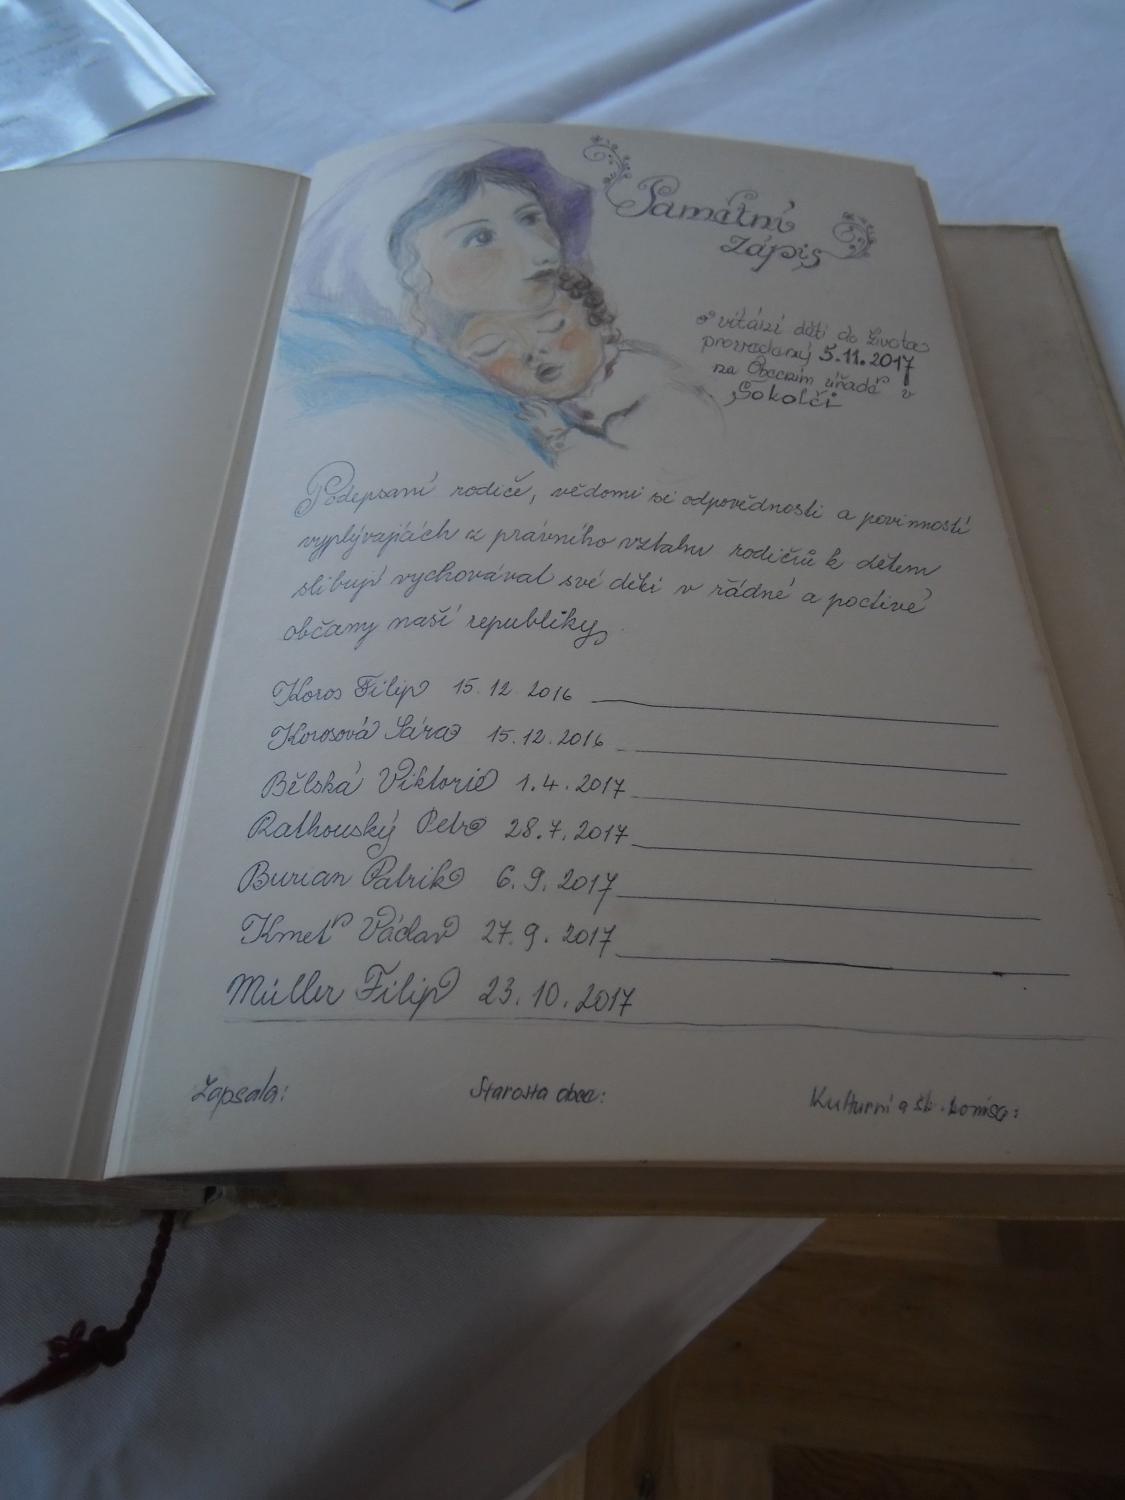 Památní
zápis
o vítání dětí do života
provedaný 5.11.2017
na Obecním úřadě v
Sokolči
Podepsaní rodiče, vědomi si odpovědnosti a povinností
vyplývajících z právního vztahu rodičů k dětem
slibují vychovával své děti v řádné a poctivé
občany naší republiky
Koros Filip 15.12.2016
Korosová Sára 15.12.2016
Bělská Viktorie 1.4.2017
Rathouský Petr 28.7.2017
Burian Patrik 6.9.2017
Kmeť Václav 27.9.2017
Müller Filip 23.10.2017
Zapsala: Starosta obce: Kulturní a šk. komise: